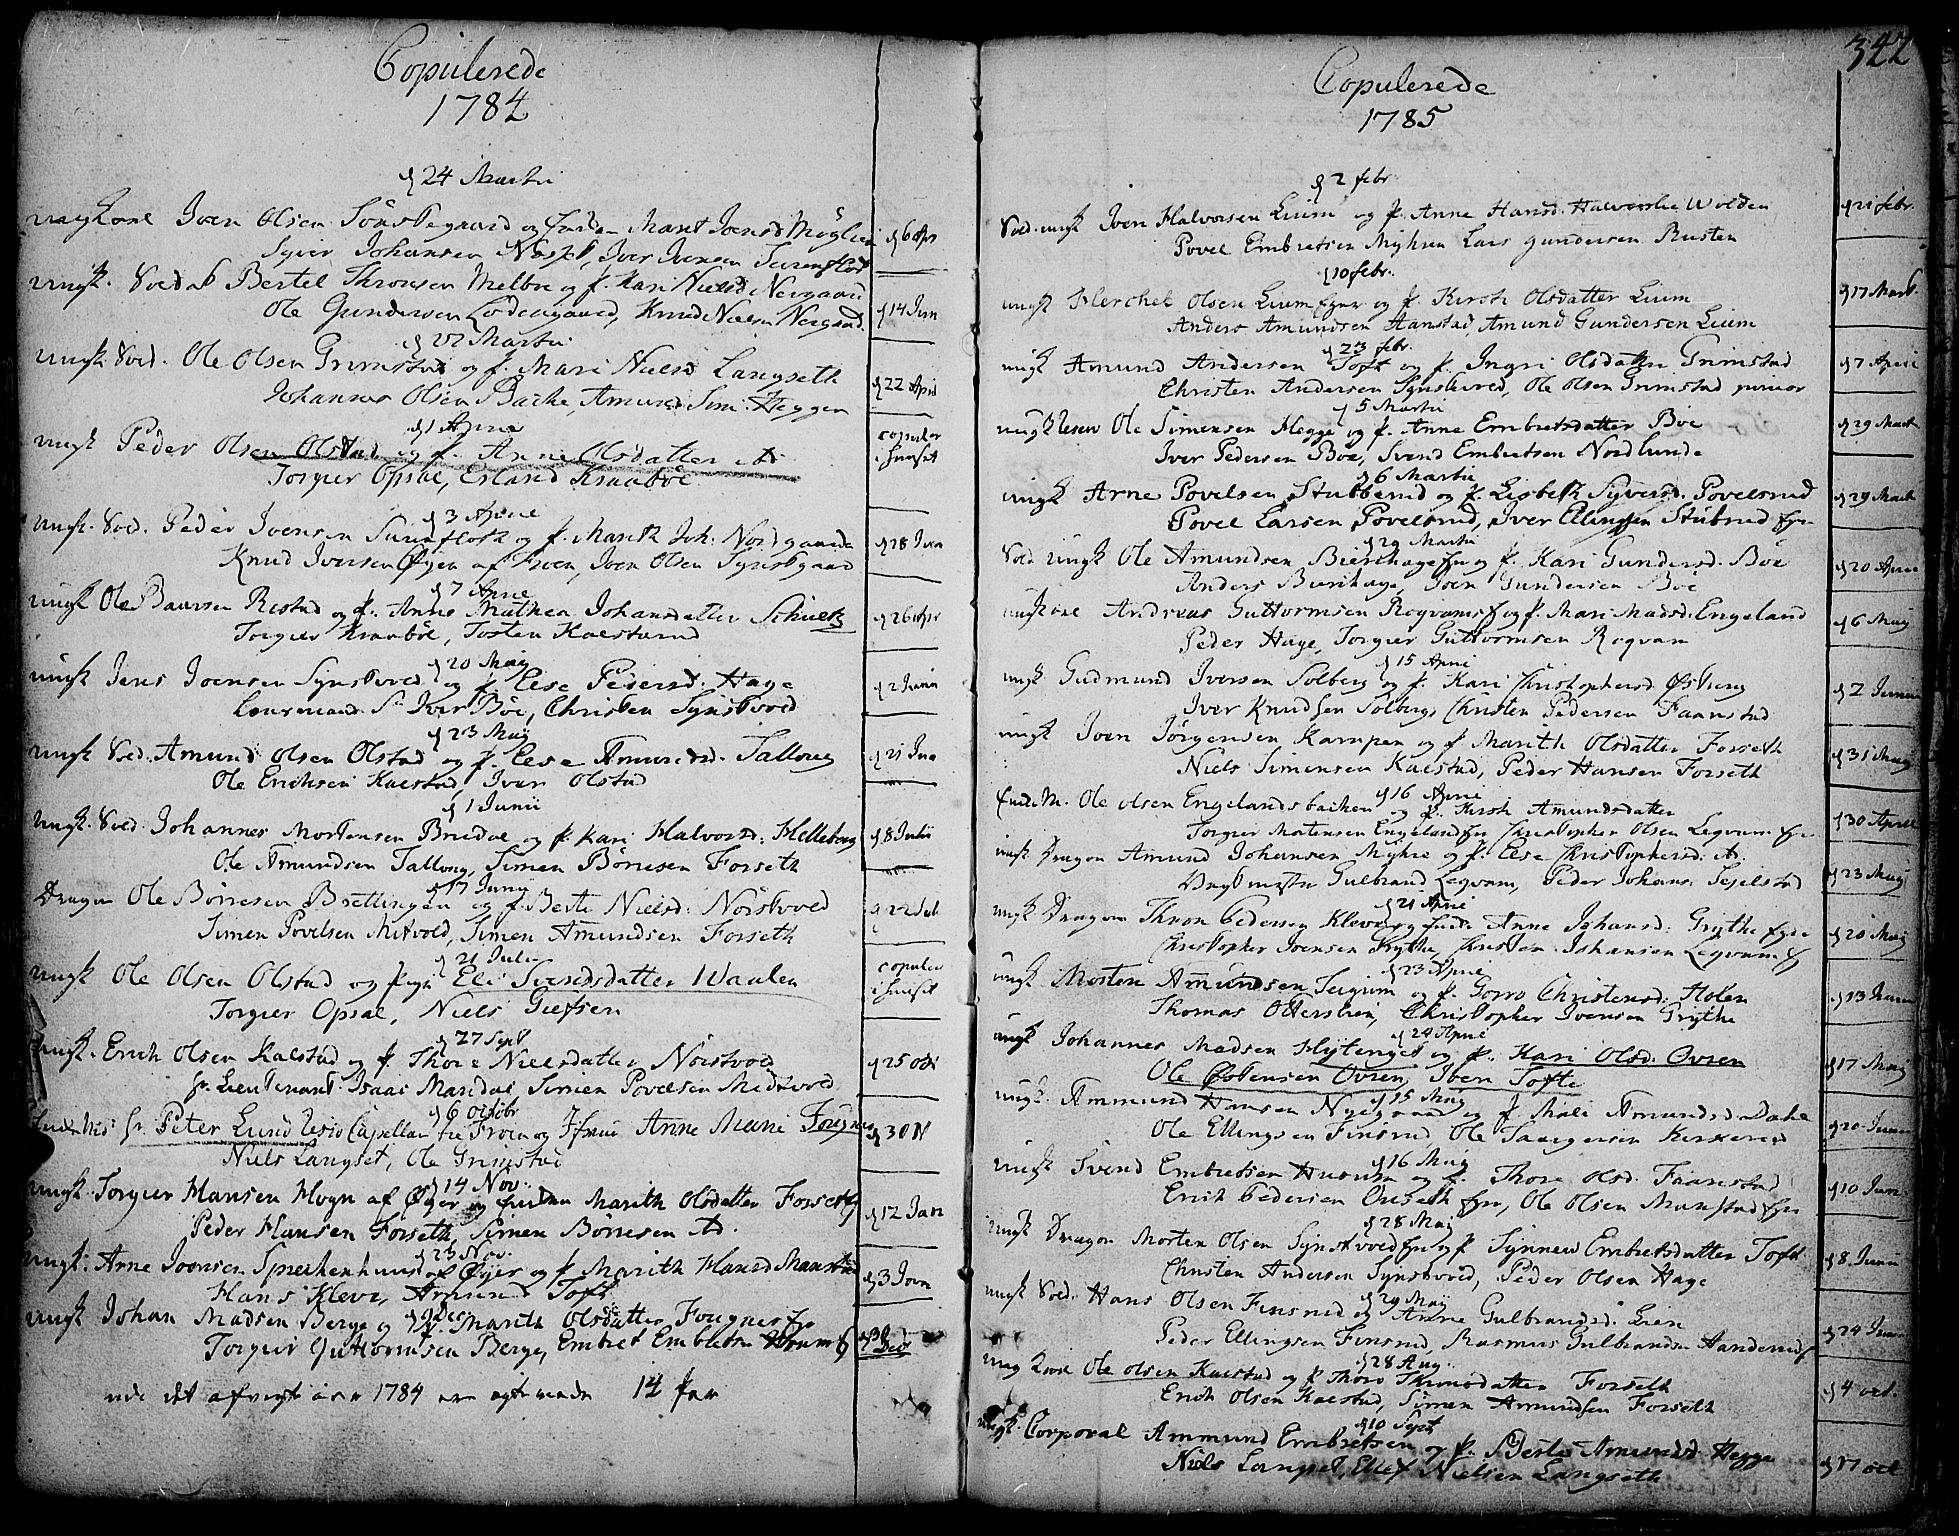 Copulerede
1784
d 24 Martii
Joen Olsen Sönstegaard og Marit Joensd Möglien
d 6 Apr
Syver Johansen Iver Iversen
ungk. Sold. Bertel Thronsen Melboe og p. Kari Nielsd Neegaard
d 14 Jun
Ole Gundersen Lodengaard, Knud Nielsen Neegaard
d 22 Martii
ungk. Sold. Ole Olsen Grimstad og p. Mari Nielsd Langseth
d 22 April
Johannes Olsen Bache, Amund Sim: Heggen
d 1 April
ungk Peder Olsen Olstad og p. Anne Olsdatter ib
copuler i huuset
Torgier Opsal, Erland Kraaböe
d 3 April
ungk. Sold. Peder Joensen og p. Marith Joh. Nordgaarde
d 28 Jun
Knud Iversen Öyen af Froen, Joen Olsen Synstgaard
d 7 April
ungk Ole Baarsen Restad og p. Anne Mathea Johansdatter Schultz
d 26 Apr
Torgier Kraaböe, Tosten Kaestad
d 20 Maij
ungk Jens Joensen Synstvold og p. Else Pedersd. Hage
d 2 Junii
Lensmand Sr Iver Böe, Christen Synstvold
d 23 Maij
ungk Sold. Amund Olsen Olstad og p. Else Amundsd. Tallong
d 21 Jun
Ole Erichsen Kaestad, Iver Olstad
d 1 Junii
ungk. Sold. Johannes Mortensen Bredal og p. Kari Halvorsd: Helleberg
d 8 Julii
Ole Amundsen Tallong, Simen Börresen Forseth
d 17 Junij
Dragon Ole Börresen Brettingen og p. Berte Nielsd. Nörstvold
d 22 Jul
Simen Povelsen Mitvold, Simen Amundsen Forseth
d 21 Julii
ungk Ole Olsen Olstad og pige Eli Svendsdatter Waalen
copuler i huuset
Torgier Opsal, Niels Giefsen
d 27 Sept
ungk. Erich Olsen Kaestad og p. Thore Nielsdatter Nörstvold
d 25 oct
hr. Lieutenant Isaac Mandal Simen Povelsen Midtvold
d 6 octobr
hr. Peter Lund Capellan til Froen og Jfrue Anne Marie Fougner
d 30 N
Niels Langset, Ole Grimstad
d 14 Nov.
ungk. Torgier Hansen Hogn af Öyer og Marith Olsdatter Forseth
d 12 Jan
Peder Hansen Forseth, Simen Börresen ib.
d 23 Nov.
ungk. Arne Joensen Sprekenhuus af Öyer og p. Marith Hansd Manstad
d 3 Jan
Hans Kleve, Amund Toft
ungk Johan Madsen Berge og p. Marith Olsdatter Fougner
Torgier Guttormsen Berge, Embret Embretsen
udi det afvigte aar 1784 ere egteviede 14 par
342
Copulerede
1785
d 2 febr
Sold. ungk Joen Halvorsen Lium og p. Anne Hansd. Wolden
d 21 febr.
Povel Embretsen Myhren Lars Gundersen Rusten
d 10 febr.
ungk Herchel Olsen Lium og p. Kirsti Olsdatter Lium
d 17 Mart.
Anders Amundsen Aanstad, Amund Gundersen Lium
d 23 febr.
ungk Amund Andersen Toft og p. Ingri Olsdatter Grimstad
d 7 Aprili
Christen Andersen Synstvold, Ole Olsen Grimstad junior
d 5 Martii
Ole Simensen Hegge og p. Anne Embretsdatter Böe
d 29 Mart
Iver Pedersen Böe, Svend Embretsen Nordlunde
d 6 Martii
ungk Arne Povelsen Stubberud og p. Lisbeth Syversd. Povelsrud
d 29 Mart
Povel Larsen Povelsrud, Iver Ellingsen Stubrud
d 29 Martii
Sold. ungk Ole Amundsen Bierchage og p. Kari Gundersd. Böe
d 20 April
Anders Bierchage, Joen Gundersen Böe
Andreas Guttormsen Rogvam og p. Mari Madsd. Engeland
d 6 Maij
Peder Hage, Torgier Guttormsen Rogvam
d 15 April
ungk Gudmund Iversen Solberg og p. Kari Christophersd. Östeng
d 2 Junii
Iver Knudsen Solberg, Christen Pedersen Faanstad
ungk Joen Jörgensen Kampen og p. Marith Olsdatter Forseth
d 31 Maij
Niels Simensen Kaestad, Peder Hansen Forseth
d 16 April
Enke M. Ole Olsen Engelandsbachen og p. Kirsti Amundsdatter
d 30 April
Torgier Mortensen Engeland Christopher Olsen Legvam
ungk Dragon Amund Johansen Myhre og p. Else Christophersd. ib
d 23 Maij
Gulbrand Legvam, Peder Johans:
d 21 April
ungk Dragon Thron Pedersen Kleve og Anne Johansd. Grythe
d 20 Maij
Christopher Joensen Grythe, Christen Johansen Legvam
d 23 April
ungk Morten Amundsen og p. Goro Christensd. Holen
d 13 Junii
Thomas Otterstien, Christopher Joensen Grythe
d 24 April
ungk Johannes Madsen Hytenget og p. Kari Olsd. Ovren
d 17 Maij
Ole Östensen Ovren, Iver Tofte
d 15 Maij
ungk. Ammund Hansen Nyegaard og p. Mali Amundsd Dahl
d 20 Junii
Ole Ellingsen Finsrud, Ole Taargersen
d 16 Maij
ungk Svend Embretsen og p. Thore Olsd. Faanstad
d 10 Jun
Erich Pedersen Onseth, Ole Olsen Manstad
d 28 Maij
ungk Dragon Morten Olsen Synstvold og p. Synnew Embretsdatter Toft
d 8 Junii
Christen Andersen Synstvold, Peder Olsen Hage
d 29 Maij
ungk Sold. Hans Olsen Finsrud og Anne Gulbrandsd. Lien
d 24 Junii
Peder Ellingsen Finsrud, Rasmus Gulbrandsen
d 28 Aug
Ole Olsen Kaestad og p. Thore Thronsdatter Forseth
d 4 oct.
Erich Olsen Kaestad, Simen Amundsen Forseth
d 10 Sept
ungk. Corporal Ammund Embretsen og p. Berte Amundsd. Hegge
d 17 oct
Niels Langset, Ellef Nielsen Langseth